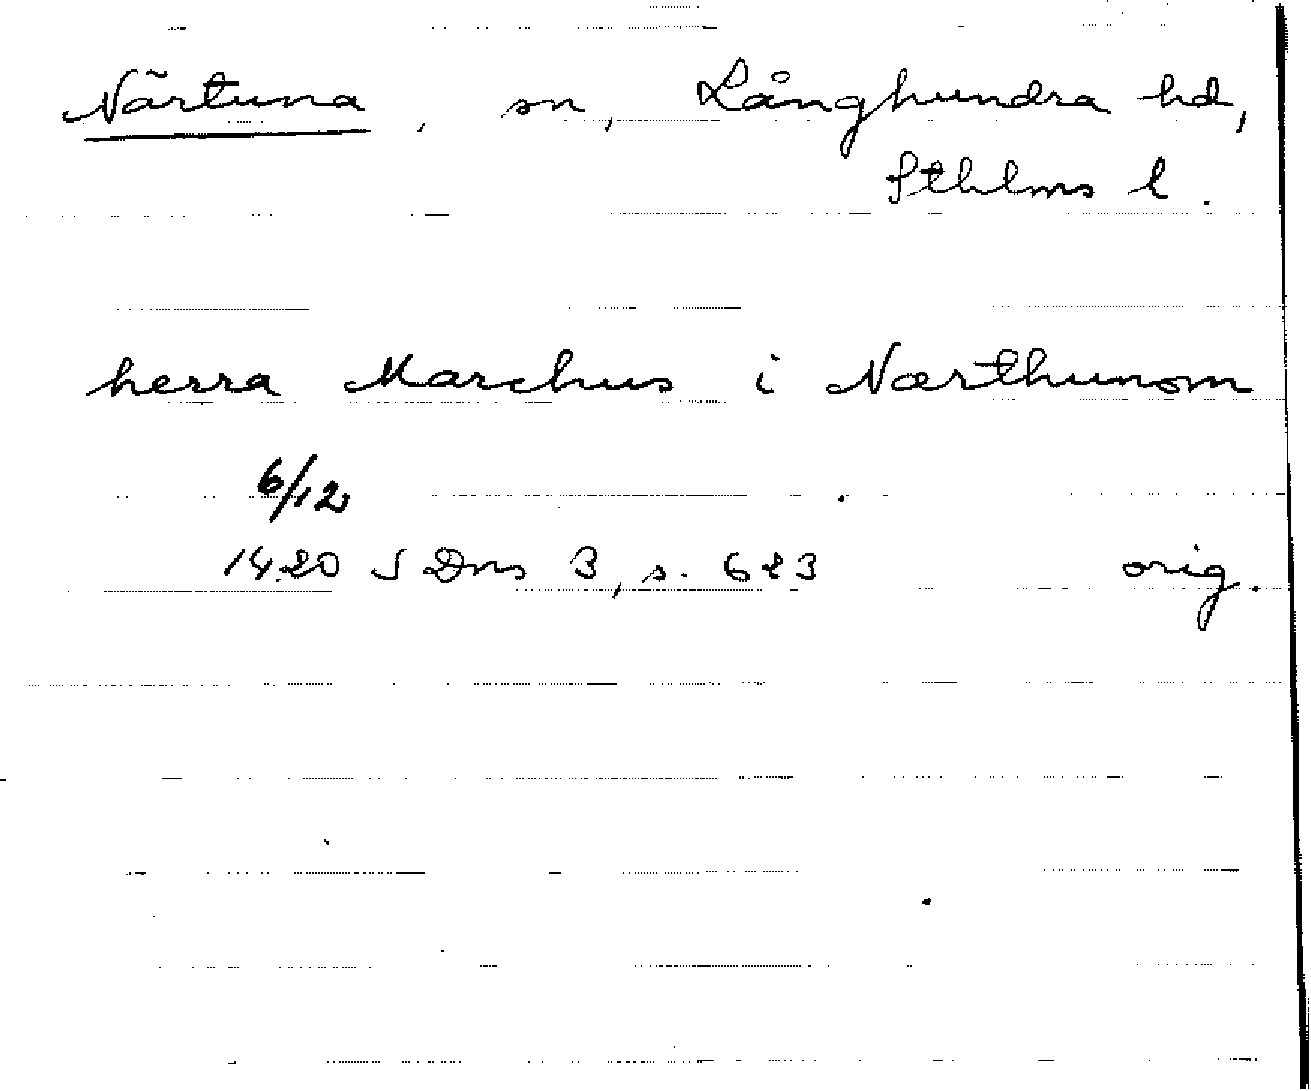 Närtuna, sn, Långhundra hd,
Sthlms l.
herra Marchus i Nærthunom
6/12
1420 SDns 3, s. 623 orig.